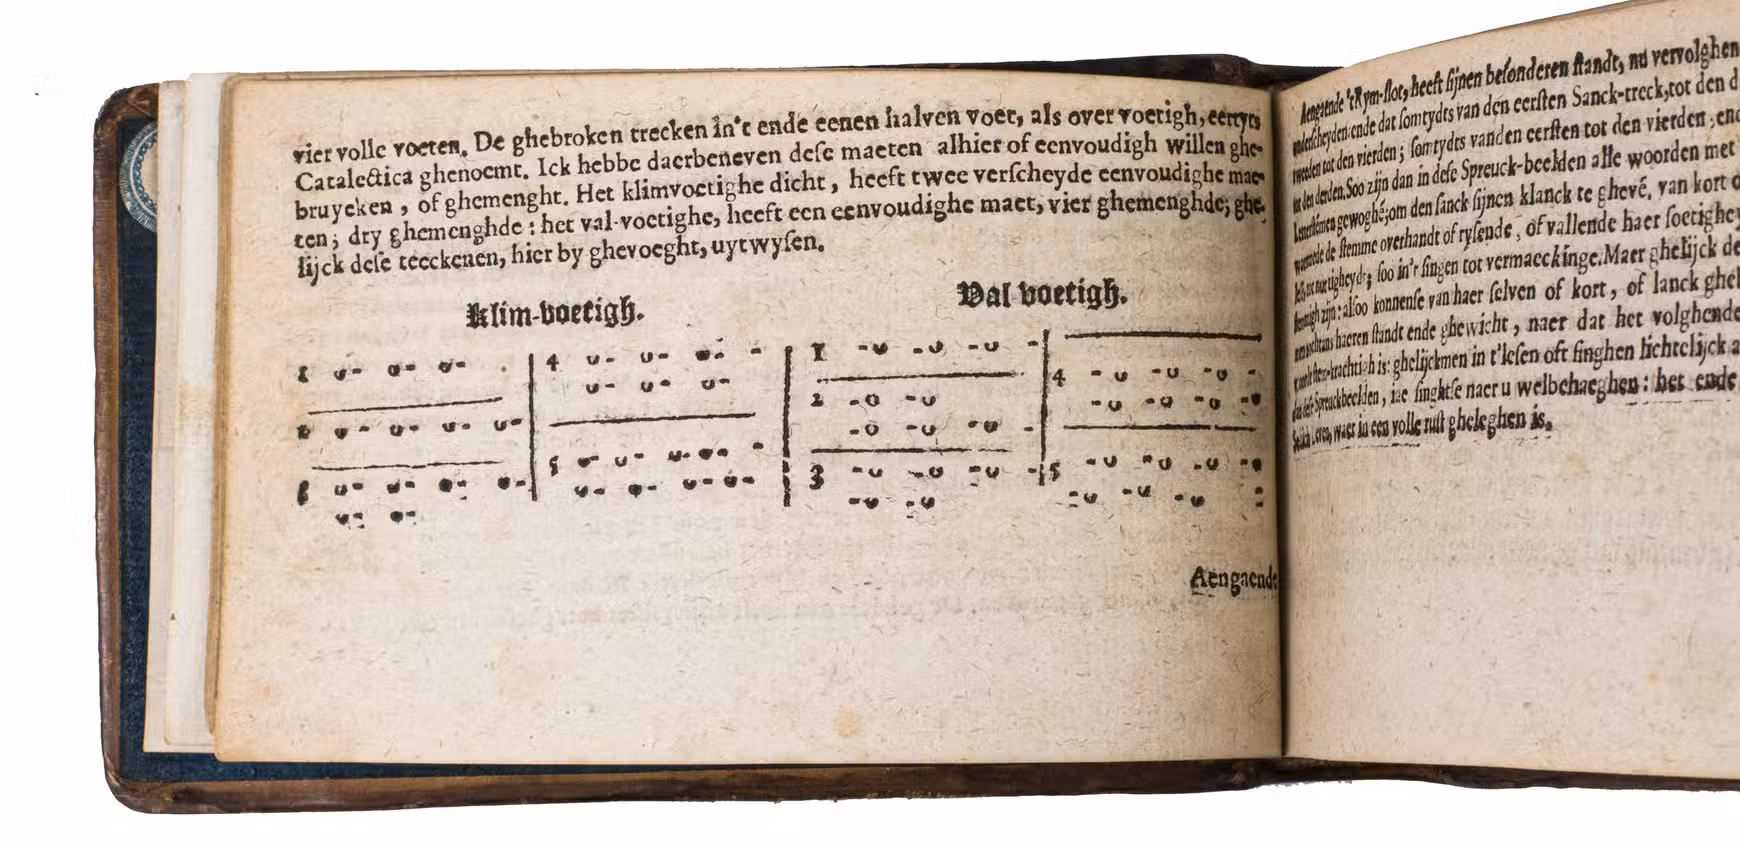 vier volle voeten. De ghebroken trecken in't ende eenen halven voet, als over voetigh, eertyts
Catalectica ghenoemt. Ick hebbe daerbeneven dese maeten alhier of eenvoudigh willen ghe-
bruycken, of ghemenght. Het klimvoetighe dicht, heeft twee verscheyde eenvoudighe mae-
ten; dry ghemenghde: het val-voetighe, heeft een eenvoudighe maet, vier ghemenghde; ghe-
lijck dese teeckenen, hier by ghevoeght, uytwysen.
Klim-voetigh.
Val voetigh.
1 ᴗ- ᴗ- ᴗ-
2 ᴗ- ᴗ- ᴗ- ᴗ-
3 ᴗ- ᴗ- ᴗ- ᴗ-
ᴗ- ᴗ-
4 ᴗ- ᴗ- ᴗ- -
ᴗ- ᴗ- ᴗ-
5 ᴗ- ᴗ- ᴗ-ᴗ- -
ᴗ- ᴗ- ᴗ-ᴗ-
1 -ᴗ -ᴗ -ᴗ -
2 -ᴗ -ᴗ
-ᴗ -ᴗ -ᴗ -
3 -ᴗ -ᴗ -ᴗ -
-ᴗ -ᴗ
4 -ᴗ -ᴗ -ᴗ -
-ᴗ -ᴗ -ᴗ -ᴗ
5 -ᴗ -ᴗ -ᴗ -ᴗ
-ᴗ -ᴗ -ᴗ -
Aengaende
Aengaende 't Rym-slot, heeft sijnen besonderen standt, nu vervolghen
onderscheyden: ende dat somtydts van den eersten Sanck-treck, tot den
tweeden tot den vierden; somtydts vanden eersten tot den vierden; ende
tot den derden. Soo zijn dan in dese Spreuck-beelden alle woorden met
gewoghē; om den sanck sijnen klanck te ghevē, van kort
de stemme overhandt of rysende, of vallende haer soetighey
soo in't singen tot vermaeckinge. Maer ghelijck de
zijn: alsoo konnense van haer selven of kort, of lanck ghel
haeren standt ende ghewicht, naer dat het volghende
krachtich is: ghelijckmen in t'lesen oft singhen lichtelijck
dese Spreuckbeelden, singhtse naer u welbehaeghen: het ende
waer in een volle rust gheleghen is.